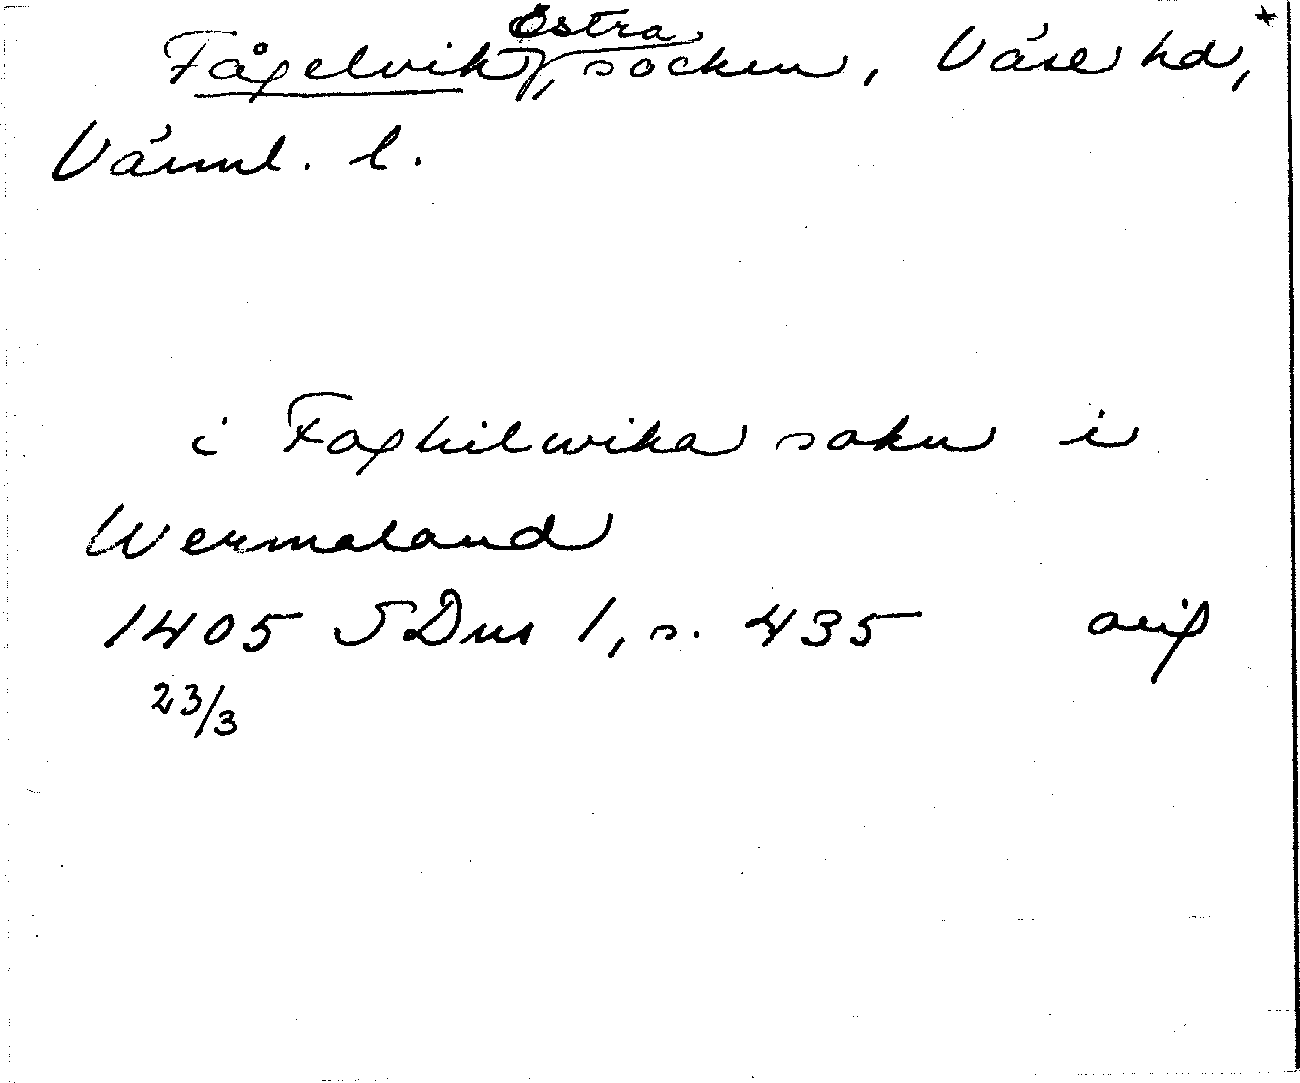 Fågelvik, Östra, socken, Väse hd, *
Värml. l.
i Foghilwika sokn i
Wermaland
1405 SDns 1, s. 435 orig
23/3